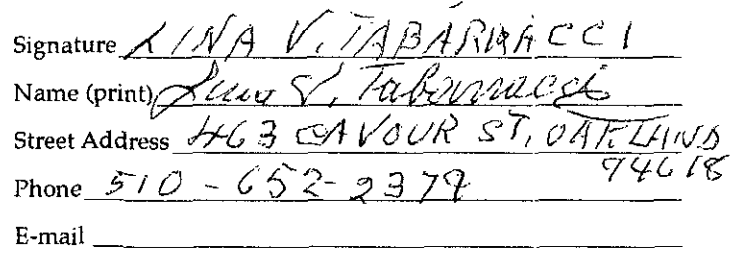 Signature LINA V. TABARRACCI
Name (print) Lina V. Tabarracci
Street Address 463 CAVOUR ST, OAKLAND
94618
Phone 510-652-2379
E-mail